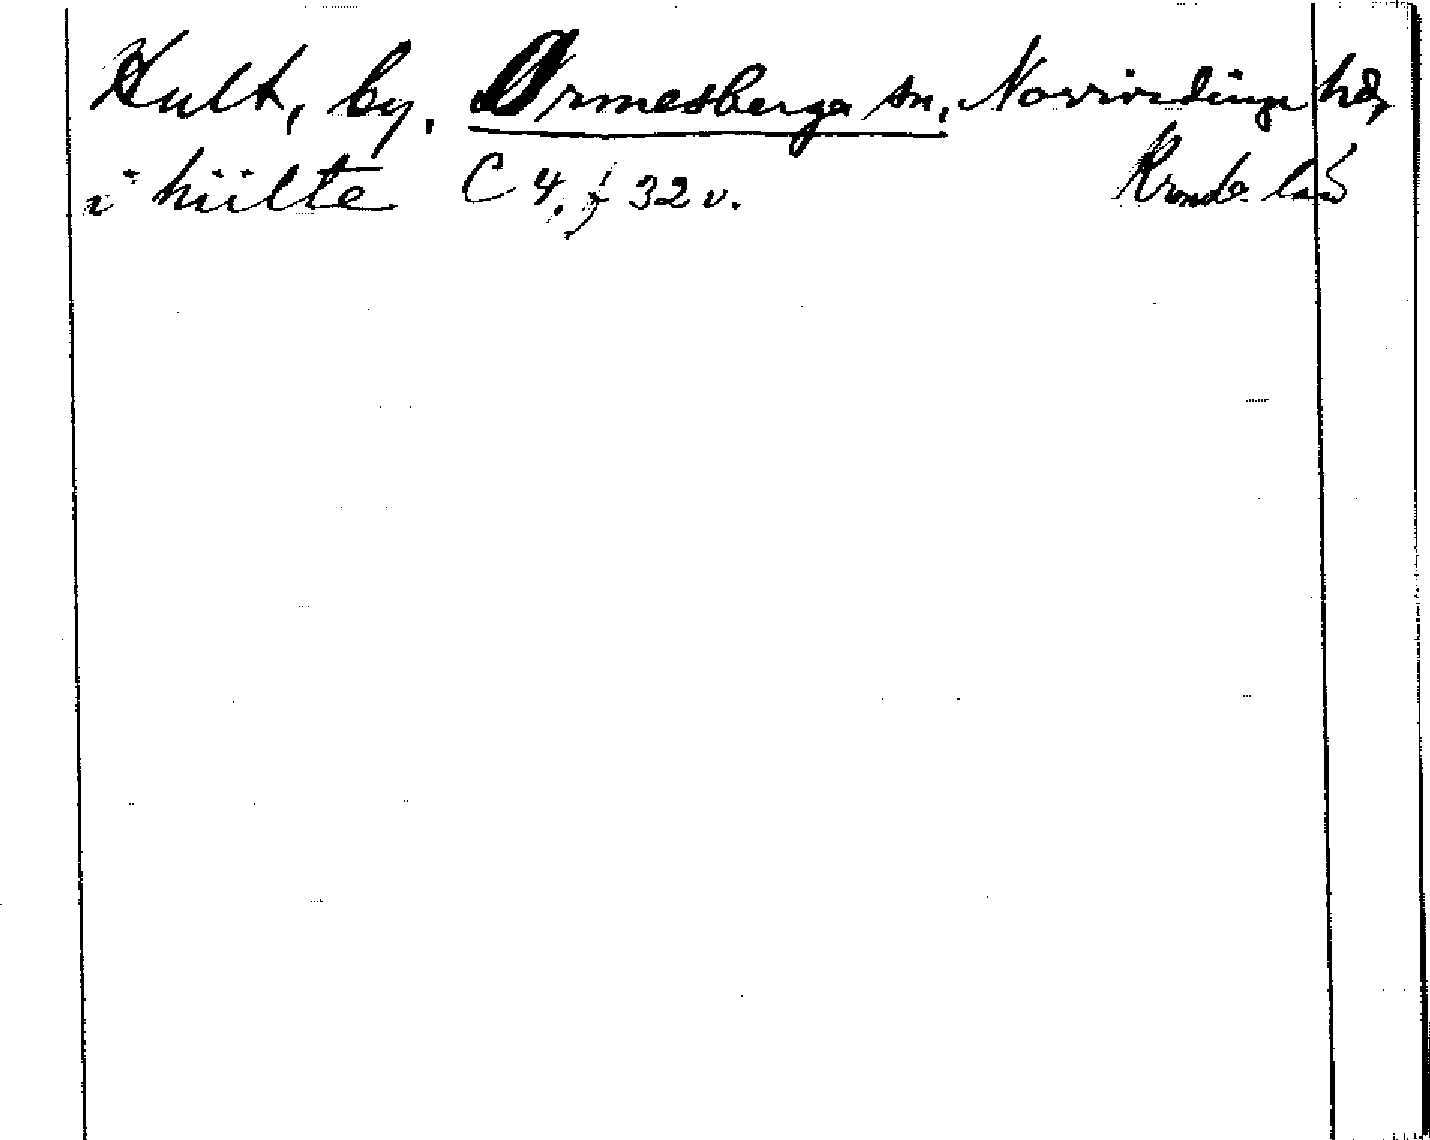 Hult, by. Ormesberga sn, Norrvidinge hd,
i hülte C 4, f 32 v. Kronob. län